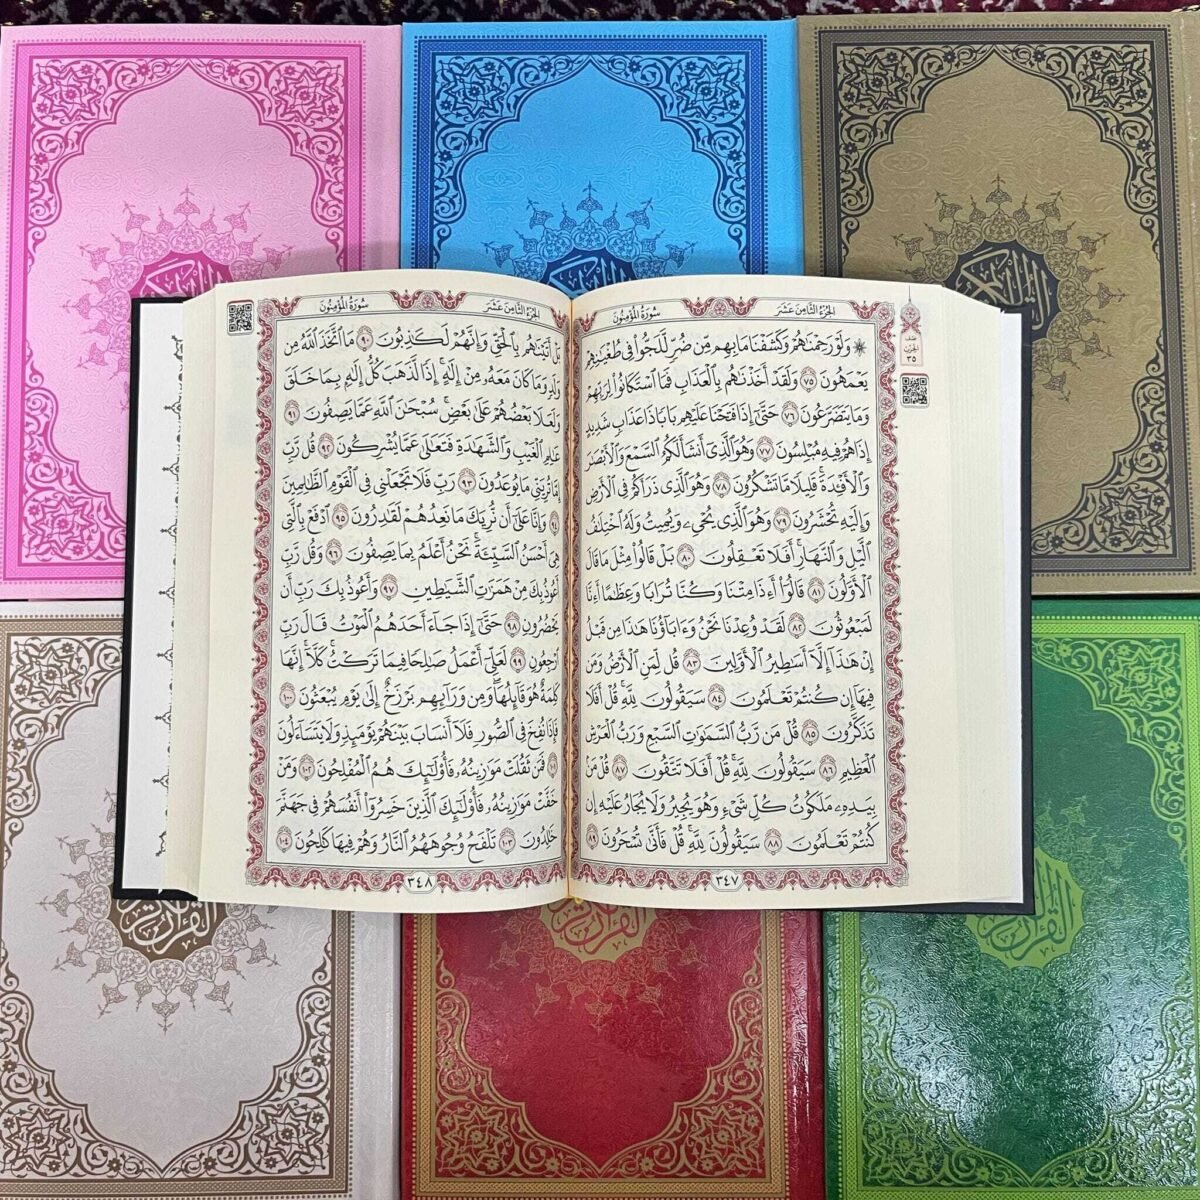 الجُزْءُ الثَّامِنَ عَشَرَ
سُورَةُ المُؤْمِنُونَ
۞ وَلَوْ رَحِمْنَٰهُمْ وَكَشَفْنَا مَا بِهِم مِّن ضُرٍّ لَّلَجُّوا۟ فِى طُغْيَٰنِهِمْ
يَعْمَهُونَ ٧٥ وَلَقَدْ أَخَذْنَٰهُم بِٱلْعَذَابِ فَمَا ٱسْتَكَانُوا۟ لِرَبِّهِمْ
وَمَا يَتَضَرَّعُونَ ٧٦ حَتَّىٰٓ إِذَا فَتَحْنَا عَلَيْهِم بَابًا ذَا عَذَابٍ شَدِيدٍ
إِذَا هُمْ فِيهِ مُبْلِسُونَ ٧٧ وَهُوَ ٱلَّذِىٓ أَنشَأَ لَكُمُ ٱلسَّمْعَ وَٱلْأَبْصَٰرَ
وَٱلْأَفْـِٔدَةَ ۚ قَلِيلًا مَّا تَشْكُرُونَ ٧٨ وَهُوَ ٱلَّذِى ذَرَأَكُمْ فِى ٱلْأَرْضِ
وَإِلَيْهِ تُحْشَرُونَ ٧٩ وَهُوَ ٱلَّذِى يُحْىِۦ وَيُمِيتُ وَلَهُ ٱخْتِلَٰفُ
ٱلَّيْلِ وَٱلنَّهَارِ ۚ أَفَلَا تَعْقِلُونَ ٨٠ بَلْ قَالُوا۟ مِثْلَ مَا قَالَ
ٱلْأَوَّلُونَ ٨١ قَالُوٓا۟ أَءِذَا مِتْنَا وَكُنَّا تُرَابًا وَعِظَٰمًا أَءِنَّا
لَمَبْعُوثُونَ ٨٢ لَقَدْ وُعِدْنَا نَحْنُ وَءَابَآؤُنَا هَٰذَا مِن قَبْلُ
إِنْ هَٰذَآ إِلَّآ أَسَٰطِيرُ ٱلْأَوَّلِينَ ٨٣ قُل لِّمَنِ ٱلْأَرْضُ وَمَن
فِيهَآ إِن كُنتُمْ تَعْلَمُونَ ٨٤ سَيَقُولُونَ لِلَّهِ ۚ قُلْ أَفَلَا
تَذَكَّرُونَ ٨٥ قُلْ مَن رَّبُّ ٱلسَّمَٰوَٰتِ ٱلسَّبْعِ وَرَبُّ ٱلْعَرْشِ
ٱلْعَظِيمِ ٨٦ سَيَقُولُونَ لِلَّهِ ۚ قُلْ أَفَلَا تَتَّقُونَ ٨٧ قُلْ مَنۢ
بِيَدِهِۦ مَلَكُوتُ كُلِّ شَىْءٍ وَهُوَ يُجِيرُ وَلَا يُجَارُ عَلَيْهِ إِن
كُنتُمْ تَعْلَمُونَ ٨٨ سَيَقُولُونَ لِلَّهِ ۚ قُلْ فَأَنَّىٰ تُسْحَرُونَ ٨٩
٣٤٧
نصف
الحزب
٣٥
الجُزْءُ الثَّامِنَ عَشَرَ
سُورَةُ المُؤْمِنُونَ
بَلْ أَتَيْنَٰهُم بِٱلْحَقِّ وَإِنَّهُمْ لَكَٰذِبُونَ ٩٠ مَا ٱتَّخَذَ ٱللَّهُ مِن
وَلَدٍ وَمَا كَانَ مَعَهُۥ مِنْ إِلَٰهٍ ۚ إِذًا لَّذَهَبَ كُلُّ إِلَٰهٍۭ بِمَا خَلَقَ
وَلَعَلَا بَعْضُهُمْ عَلَىٰ بَعْضٍ ۚ سُبْحَٰنَ ٱللَّهِ عَمَّا يَصِفُونَ ٩١
عَٰلِمِ ٱلْغَيْبِ وَٱلشَّهَٰدَةِ فَتَعَٰلَىٰ عَمَّا يُشْرِكُونَ ٩٢ قُل رَّبِّ
إِمَّا تُرِيَنِّى مَا يُوعَدُونَ ٩٣ رَبِّ فَلَا تَجْعَلْنِى فِى ٱلْقَوْمِ ٱلظَّٰلِمِينَ
٩٤ وَإِنَّا عَلَىٰٓ أَن نُّرِيَكَ مَا نَعِدُهُمْ لَقَٰدِرُونَ ٩٥ ٱدْفَعْ بِٱلَّتِى
هِىَ أَحْسَنُ ٱلسَّيِّئَةَ ۚ نَحْنُ أَعْلَمُ بِمَا يَصِفُونَ ٩٦ وَقُل رَّبِّ
أَعُوذُ بِكَ مِنْ هَمَزَٰتِ ٱلشَّيَٰطِينِ ٩٧ وَأَعُوذُ بِكَ رَبِّ أَن
يَحْضُرُونِ ٩٨ حَتَّىٰٓ إِذَا جَآءَ أَحَدَهُمُ ٱلْمَوْتُ قَالَ رَبِّ
ٱرْجِعُونِ ٩٩ لَعَلِّىٓ أَعْمَلُ صَٰلِحًا فِيمَا تَرَكْتُ ۚ كَلَّآ ۚ إِنَّهَا
كَلِمَةٌ هُوَ قَآئِلُهَا ۖ وَمِن وَرَآئِهِم بَرْزَخٌ إِلَىٰ يَوْمِ يُبْعَثُونَ ١٠٠
فَإِذَا نُفِخَ فِى ٱلصُّورِ فَلَآ أَنسَابَ بَيْنَهُمْ يَوْمَئِذٍ وَلَا يَتَسَآءَلُونَ
١٠١ فَمَن ثَقُلَتْ مَوَٰزِينُهُۥ فَأُو۟لَٰٓئِكَ هُمُ ٱلْمُفْلِحُونَ ١٠٢ وَمَنْ
خَفَّتْ مَوَٰزِينُهُۥ فَأُو۟لَٰٓئِكَ ٱلَّذِينَ خَسِرُوٓا۟ أَنفُسَهُمْ فِى جَهَنَّمَ
خَٰلِدُونَ ١٠٣ تَلْفَحُ وُجُوهَهُمُ ٱلنَّارُ وَهُمْ فِيهَا كَٰلِحُونَ ١٠٤
٣٤٨